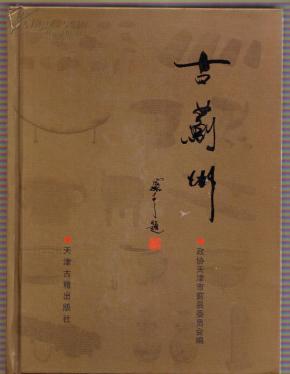 古蓟州
政协天津市蓟县委员会编
天津古籍出版社